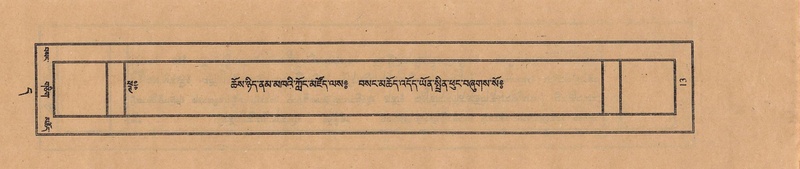 ཆོས་ཉིད་ནམ་མཁའི་ཀློང་མཛོད་ལས༔ བསང་མཆོད་འདོད་ཡོན་སྤྲིན་ཕུང་བཞུགས་སོ༔
13